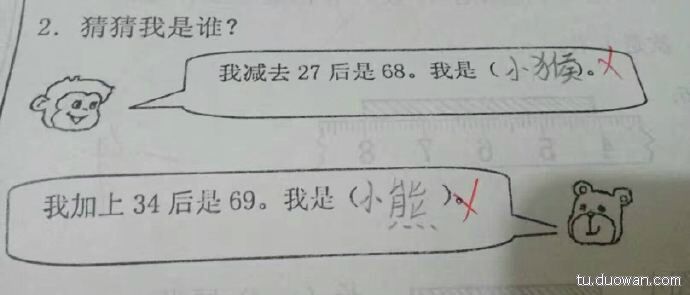 2. 猜猜我是谁?
我减去 27 后是 68。我是(小猴)。
我加上 34 后是 69。我是(小熊)。
tu.duowan.com